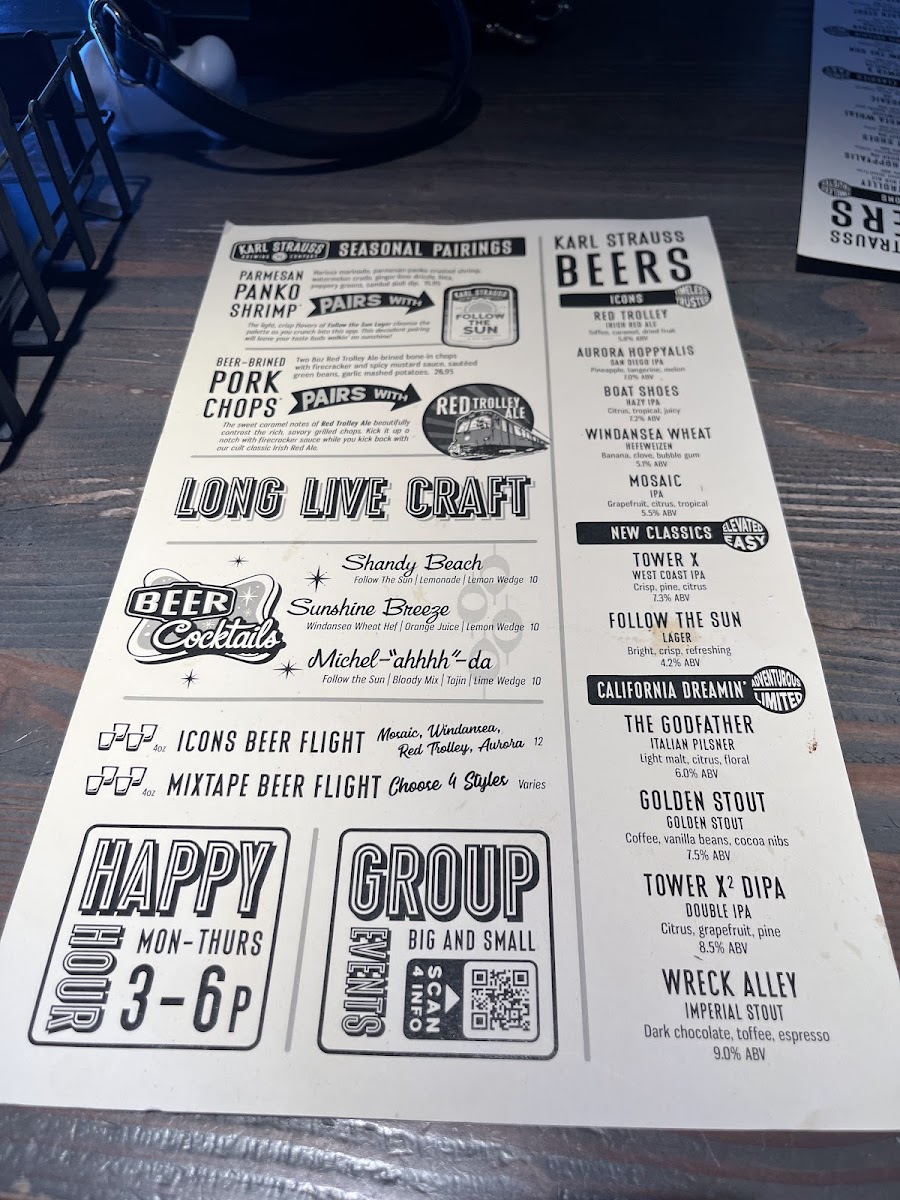 KARL STRAUSS
BREWING COMPANY
SEASONAL PAIRINGS
PARMESAN
PANKO
SHRIMP*
Harissa marinade, parmesan-panko crusted shrimp,
watermelon crudo, ginger-lime drizzle, feta,
peppery greens, zambal aioli dip. 15.95
PAIRS WITH
KARL STRAUSS
FOLLOW
THE
SUN
The light, crisp flavors of Follow the Sun Lager cleanse the
palette as you crunch into this app. This decadent pairing
will leave your taste buds walkin' on sunshine!
BEER-BRINED
PORK
CHOPS*
Two 8oz Red Trolley Ale-brined bone-in chops
with firecracker and spicy mustard sauce, sautéed
green beans, garlic mashed potatoes. 26.95
PAIRS WITH
RED TROLLEY
ALE
The sweet caramel notes of Red Trolley Ale beautifully
contrast the rich, savory grilled chops. Kick it up a
notch with firecracker sauce while you kick back with
our cult classic Irish Red Ale.
LONG LIVE CRAFT
BEER
Cocktails
Shandy Beach
Follow The Sun | Lemonade | Lemon Wedge 10
Sunshine Breeze
Windansea Wheat Hef | Orange Juice | Lemon Wedge 10
Michel-"ahhhh"-da
Follow the Sun | Bloody Mix | Tajin | Lime Wedge 10
4oz ICONS BEER FLIGHT Mosaic, Windansea,
Red Trolley, Aurora 12
4oz MIXTAPE BEER FLIGHT Choose 4 Styles Varies
HAPPY
HOUR
MON-THURS
3-6P
GROUP
EVENTS
BIG AND SMALL
SCAN
4 INFO
KARL STRAUSS
BEERS
ICONS
TIMELESS
TRUSTED
RED TROLLEY
IRISH RED ALE
Toffee, caramel, dried fruit
5.8% ABV
AURORA HOPPYALIS
SAN DIEGO IPA
Pineapple, tangerine, melon
7.0% ABV
BOAT SHOES
HAZY IPA
Citrus, tropical, juicy
7.2% ABV
WINDANSEA WHEAT
HEFEWEIZEN
Banana, clove, bubble gum
5.1% ABV
MOSAIC
IPA
Grapefruit, citrus, tropical
5.5% ABV
NEW CLASSICS
ELEVATED
EASY
TOWER X
WEST COAST IPA
Crisp, pine, citrus
7.3% ABV
FOLLOW THE SUN
LAGER
Bright, crisp, refreshing
4.2% ABV
CALIFORNIA DREAMIN'
ADVENTUROUS
LIMITED
THE GODFATHER
ITALIAN PILSNER
Light malt, citrus, floral
6.0% ABV
GOLDEN STOUT
GOLDEN STOUT
Coffee, vanilla beans, cocoa nibs
7.5% ABV
TOWER X² DIPA
DOUBLE IPA
Citrus, grapefruit, pine
8.5% ABV
WRECK ALLEY
IMPERIAL STOUT
Dark chocolate, toffee, espresso
9.0% ABV
STRAUSS
ERS
TROLLEY
HOPPYALIS